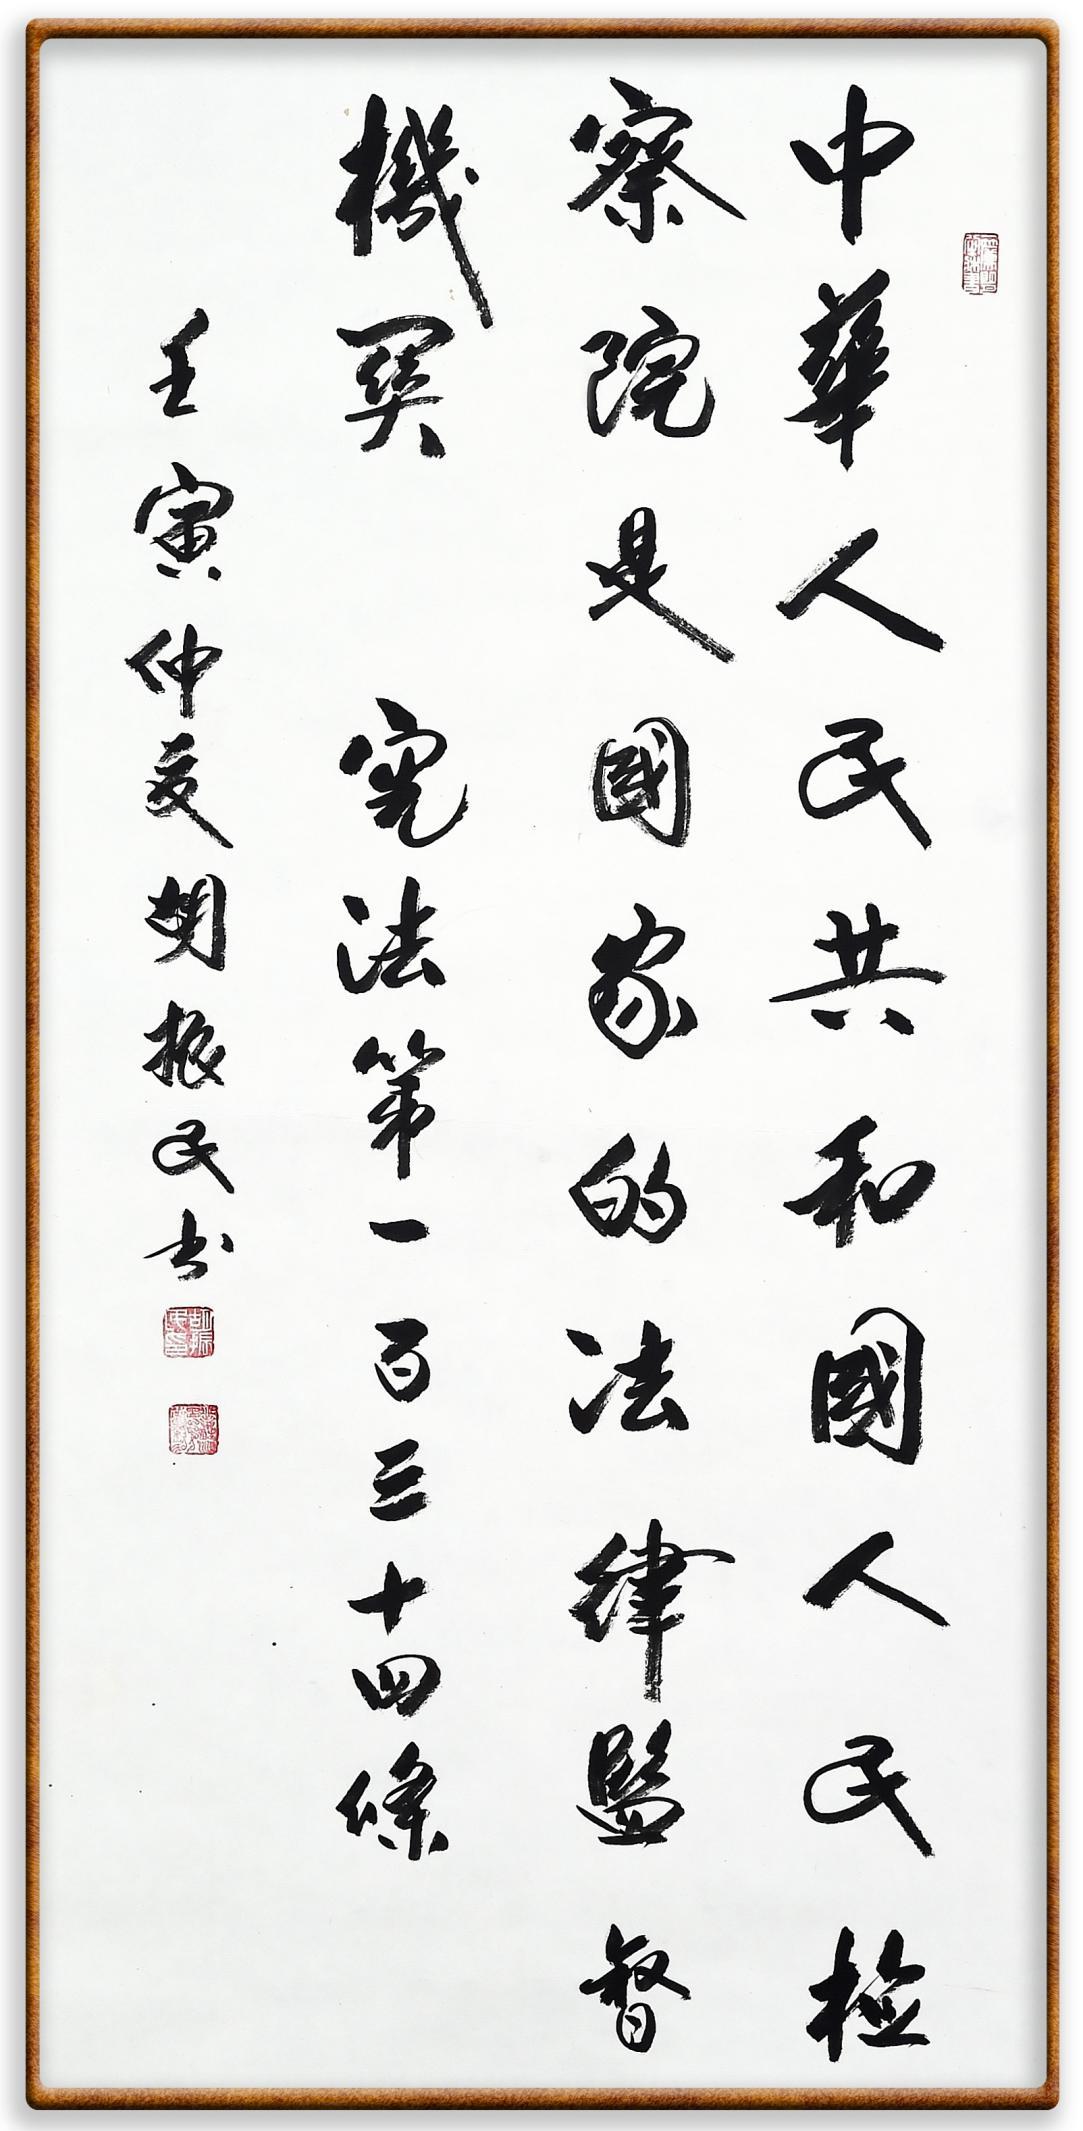 中華人民共和國人民檢
察院是國家的法律監督
機関 憲法第一百三十四條
壬寅仲夏胡振民书
胡振民印